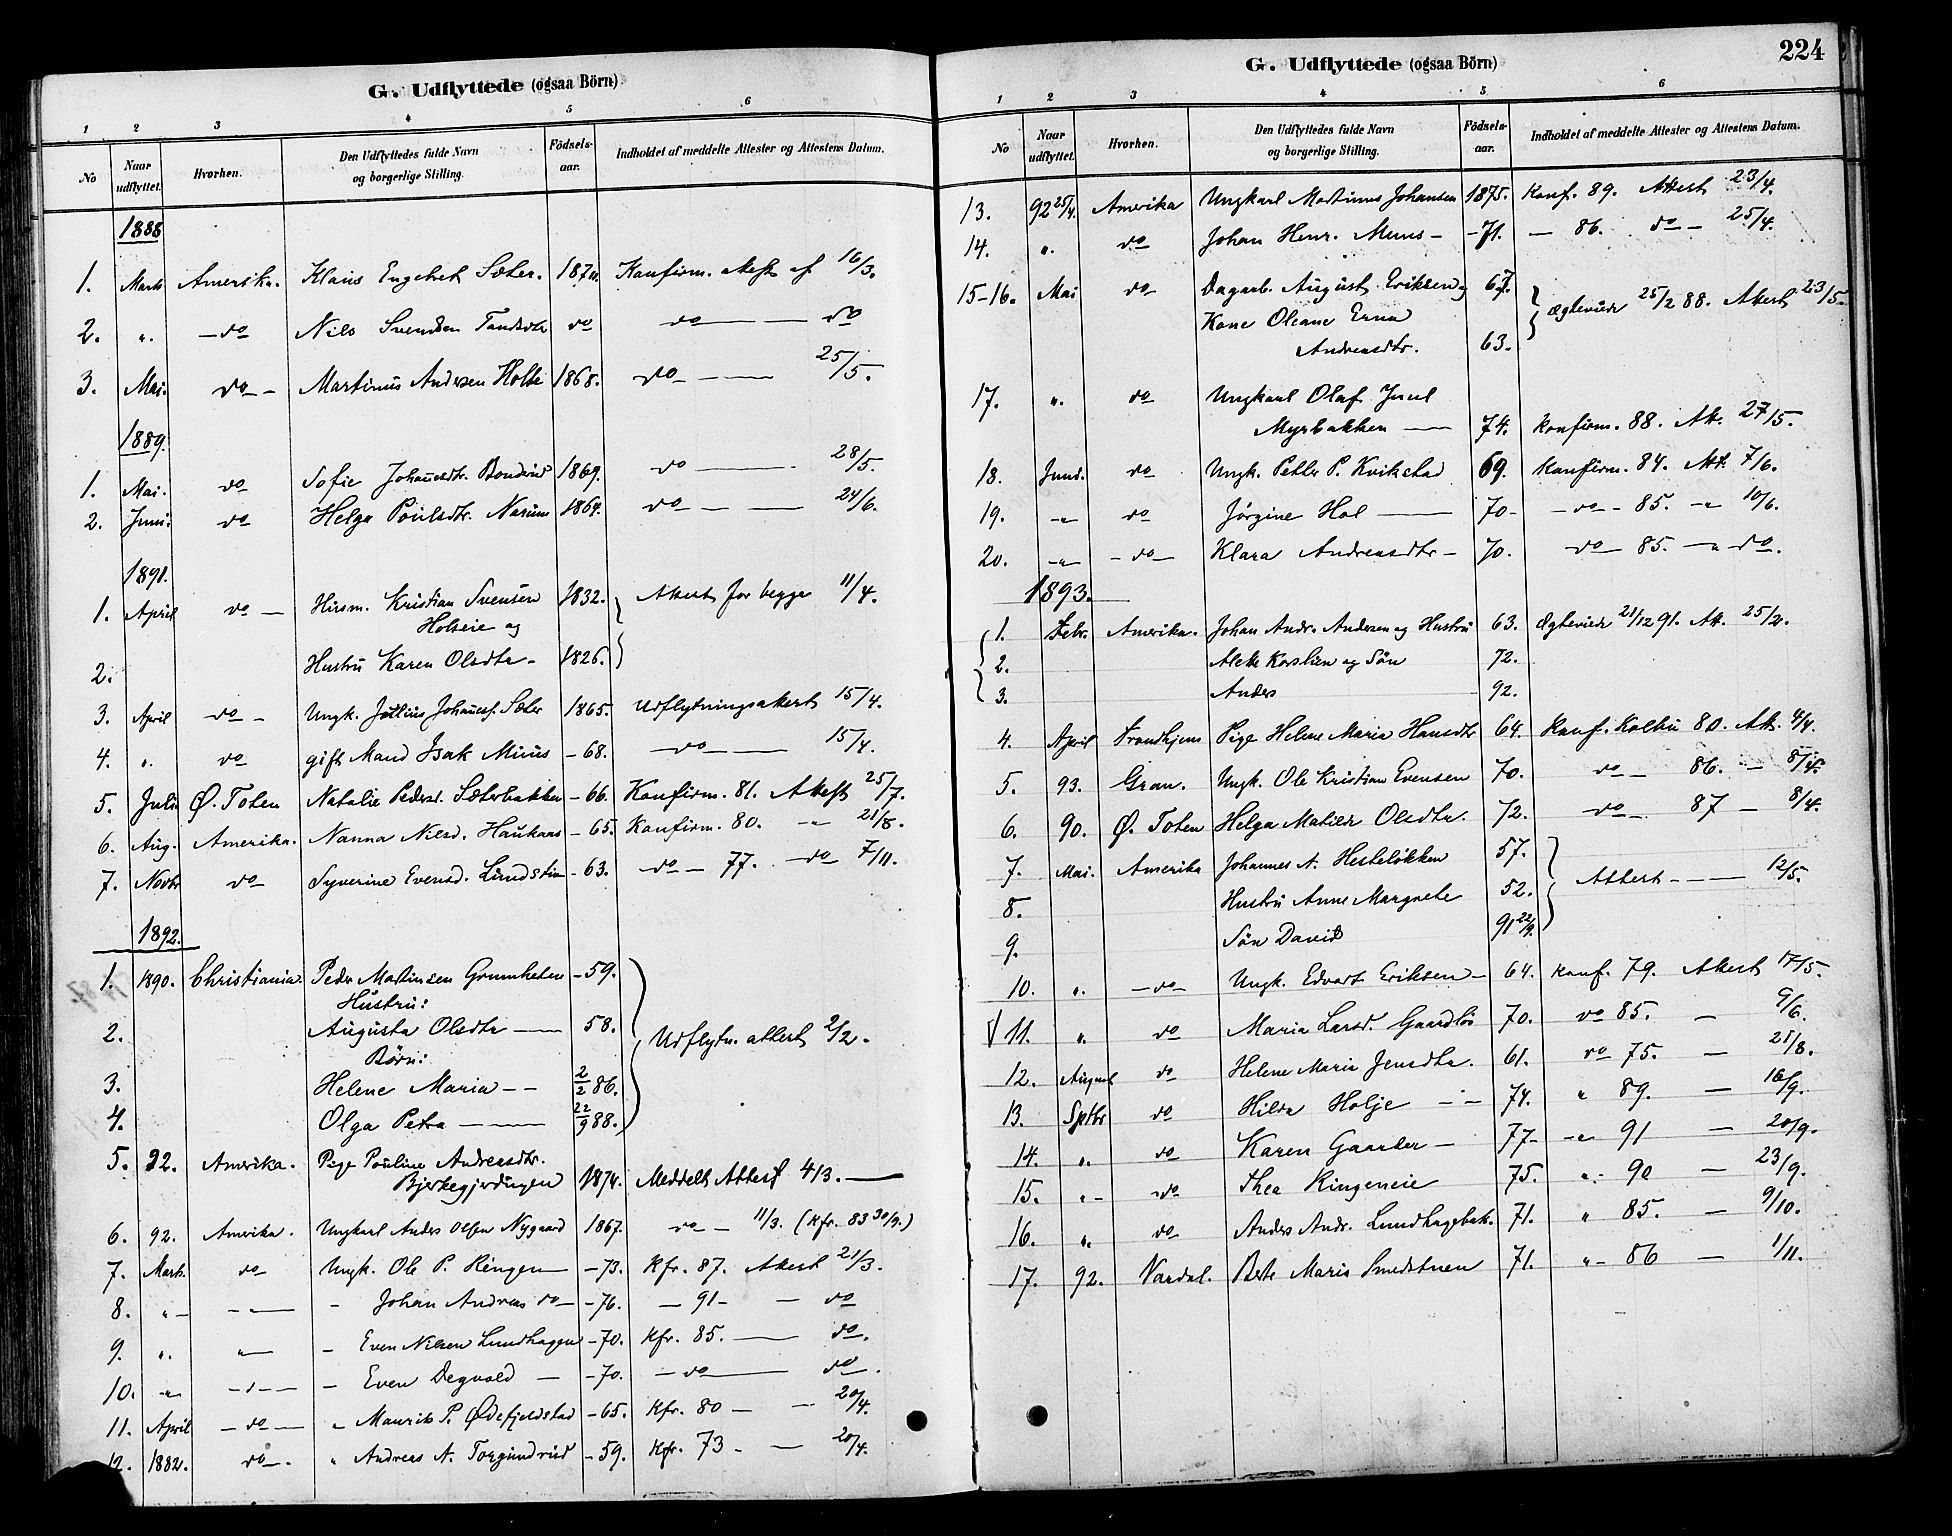 G. Udflyttede (ogsaa Börn)
1 2 3 4 5 6
No Naar udflyttet. Hvorhen. Den Udflyttedes fulde Navn og borgerlige Stilling. Födsels-aar. Indholdet af meddelte Attester og Attestens Datum.
1888
1. Marts Amerika. Klaus Engebret Sæter. Konfirm. attest af 16/3.
2. ". - do Nils Svendsen do do — do
3. Mai. do - Martinus Andersen Holte 1868. do — 25/5.
1889.
1. Mai. do Sofie Johannesdtr. Bondrud 1869. do — 28/5.
2. Juni. do Helga Poulsdtr. Narum 1864. do — 24/6.
1891.
1. April do — Husm. Kristian Svensen 1832. Attest for begge 11/4.
Holseie og
2. Hustru Karen Olsdtr - 1826.
3. April do - Ungk. Julius Johannesf. Sæter 1865. Udflytningsattest 15/4.
4. ". do gift Mand Isak Muus - 68. do — 15/4.
5. Juli Ø. Toten Natalie Pedersd. Sæterbakken - 66. Konfirm. 81. Attest 25/7.
6. Aug. Amerika. Nanna Nilsd. Haukaas - 65. Konfirm. 80. -"- 21/8.
7. Novbr do Syverine Evensd. Lundstein - 63. do - 77. do 7/11.
1892.
1. 1890. Christiania. Peder Martinsen Grønnheten - 59.
Hustru:
2. Augusta Olsdtr — 58. Udflytn. attest 2/2.
Børn:
3. Helene Maria - - 2/2 86.
4. Olga Petra — 22/9 88.
5. 92. Amerika. Pige Pauline Andreasdtr.
Bjerkegjerdingen 1874. Meddelt Attest 4/3. —
6. 92. Amerika. Ungkarl Anders Olsen Nygaard 1867. do - 11/3. (Kfr. 83 30/9.)
7. Marts do Ungk. Ole P. Ringen - 73. Kfr. 87. Attest 21/3.
8. " - - " - - Johan Andreas do - 76. - 91 - — do
9. ". " - Even Nilsen Lundhagen - 70. Kfr. 85. — do.
10. " - " - - Even Degvold — - 70. - do — do.
11. April - do - " Maurits P. Ødefjeldstad - 65. Kfr. 80 — - 20/4.
12. 1882. do - " Andreas A. Torgundrud - 59. Kfr. 73 - — 20/4.
224
G. Udflyttede (ogsaa Börn)
1 2 3 4 5 6
No Naar udflyttet. Hvorhen. Den Udflyttedes fulde Navn og borgerlige Stilling. Födsels-aar. Indholdet af meddelte Attester og Attestens Datum.
13. 92 25/4. Amerika Ungkarl Martinus Johansen 1875. Konf. 89. Attest 23/4.
14. ". do Johan Henr. Muus - - 71. — 86. do - 25/4.
15-16. Mai do Dagarb. August Eriksen og 67.
Kone Oleane Erna Ægteviede 25/2 88. Attest 23/5.
Andreasdtr. 63.
17. ". do Ungkarl Olaf Juul
Myrbakken — 74. Konfirm. 88. Att. 27/5.
18. Juni. do Ungk. Petter P. Kvikstad 69. Konfirm. 84. Att. 7/6.
19. -" do Jørgine Hol — 70 - - do - 85. -" 10/6.
20. -"- - do - Klara Andreasdtr - 70. do - 85. -" do.
1893.
1. Febr. Amerika. Johan Andr. Andersen og Hustru 63. Ægteviede 21/12 91. Att. 25/2.
2. Alette Korslien og Søn 72.
3. Anders 92.
4. April Trondhjem Pige Helene Maria Hansdtr 64. Konf. Kolbu 80. Att. 4/4.
5. 93. Gran. Ungk. Ole Kristian Evensen 70. do - 86. - 8/4.
6. 90. Ø. Toten Helga Matilde Olsdtr. 72. do - 87 - 8/4.
7. Mai. Amerika Johannes A. Hesteløkken 57.
8. Hustru Anne Margrete 52. Attest — 12/5.
9. Søn David 91 22/9.
10. ". - do - Ungk. Edvart Eriksen - 64. Konf. 79. Attest 17/5.
11. ". do Maria Larsd. Gaardlös 70. do 85. - 9/6.
12. August do Helene Maria Jensdtr. 61. do 75. — 21/8.
13. Septbr do Hilda Holje - - 74. " 89. — 16/9.
14. ". do Karen Gaarder - 77 - -" 91 — 20/9.
15. " - do Thea Ringeneie 75. " 90 — 23/9.
16. ". do Anders Andr. Lundhagebak. 71. " 85. — 9/10.
17. 92. Vardal. Berte Marie Smedstuen 71. " - 86 — 1/11.